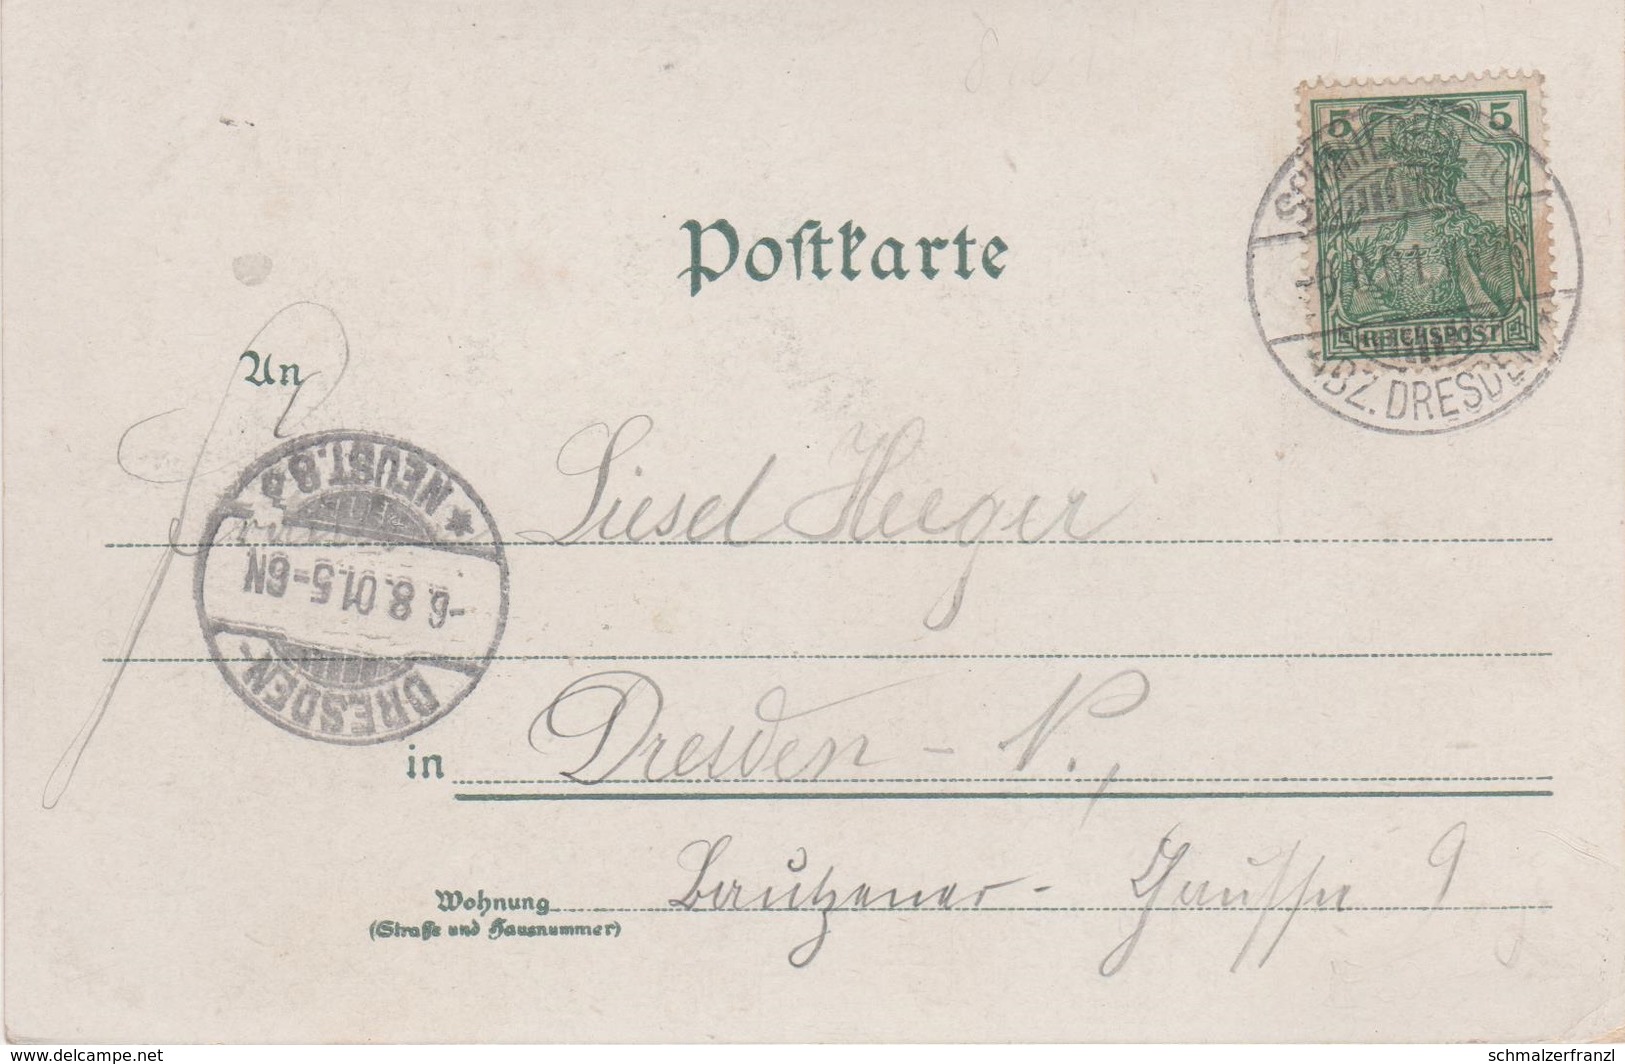 5 5
REICHSPOST
BZ. DRESDEN
Postkarte
An
Liesel Heeger
NEUST. 8
-6.8.01.5-6N
DRESDEN
in Dresden - N.,
Wohnung Bautzener-
(Straße und Hausnummer)
9
www.delcampe.net
schmalzerfranzl